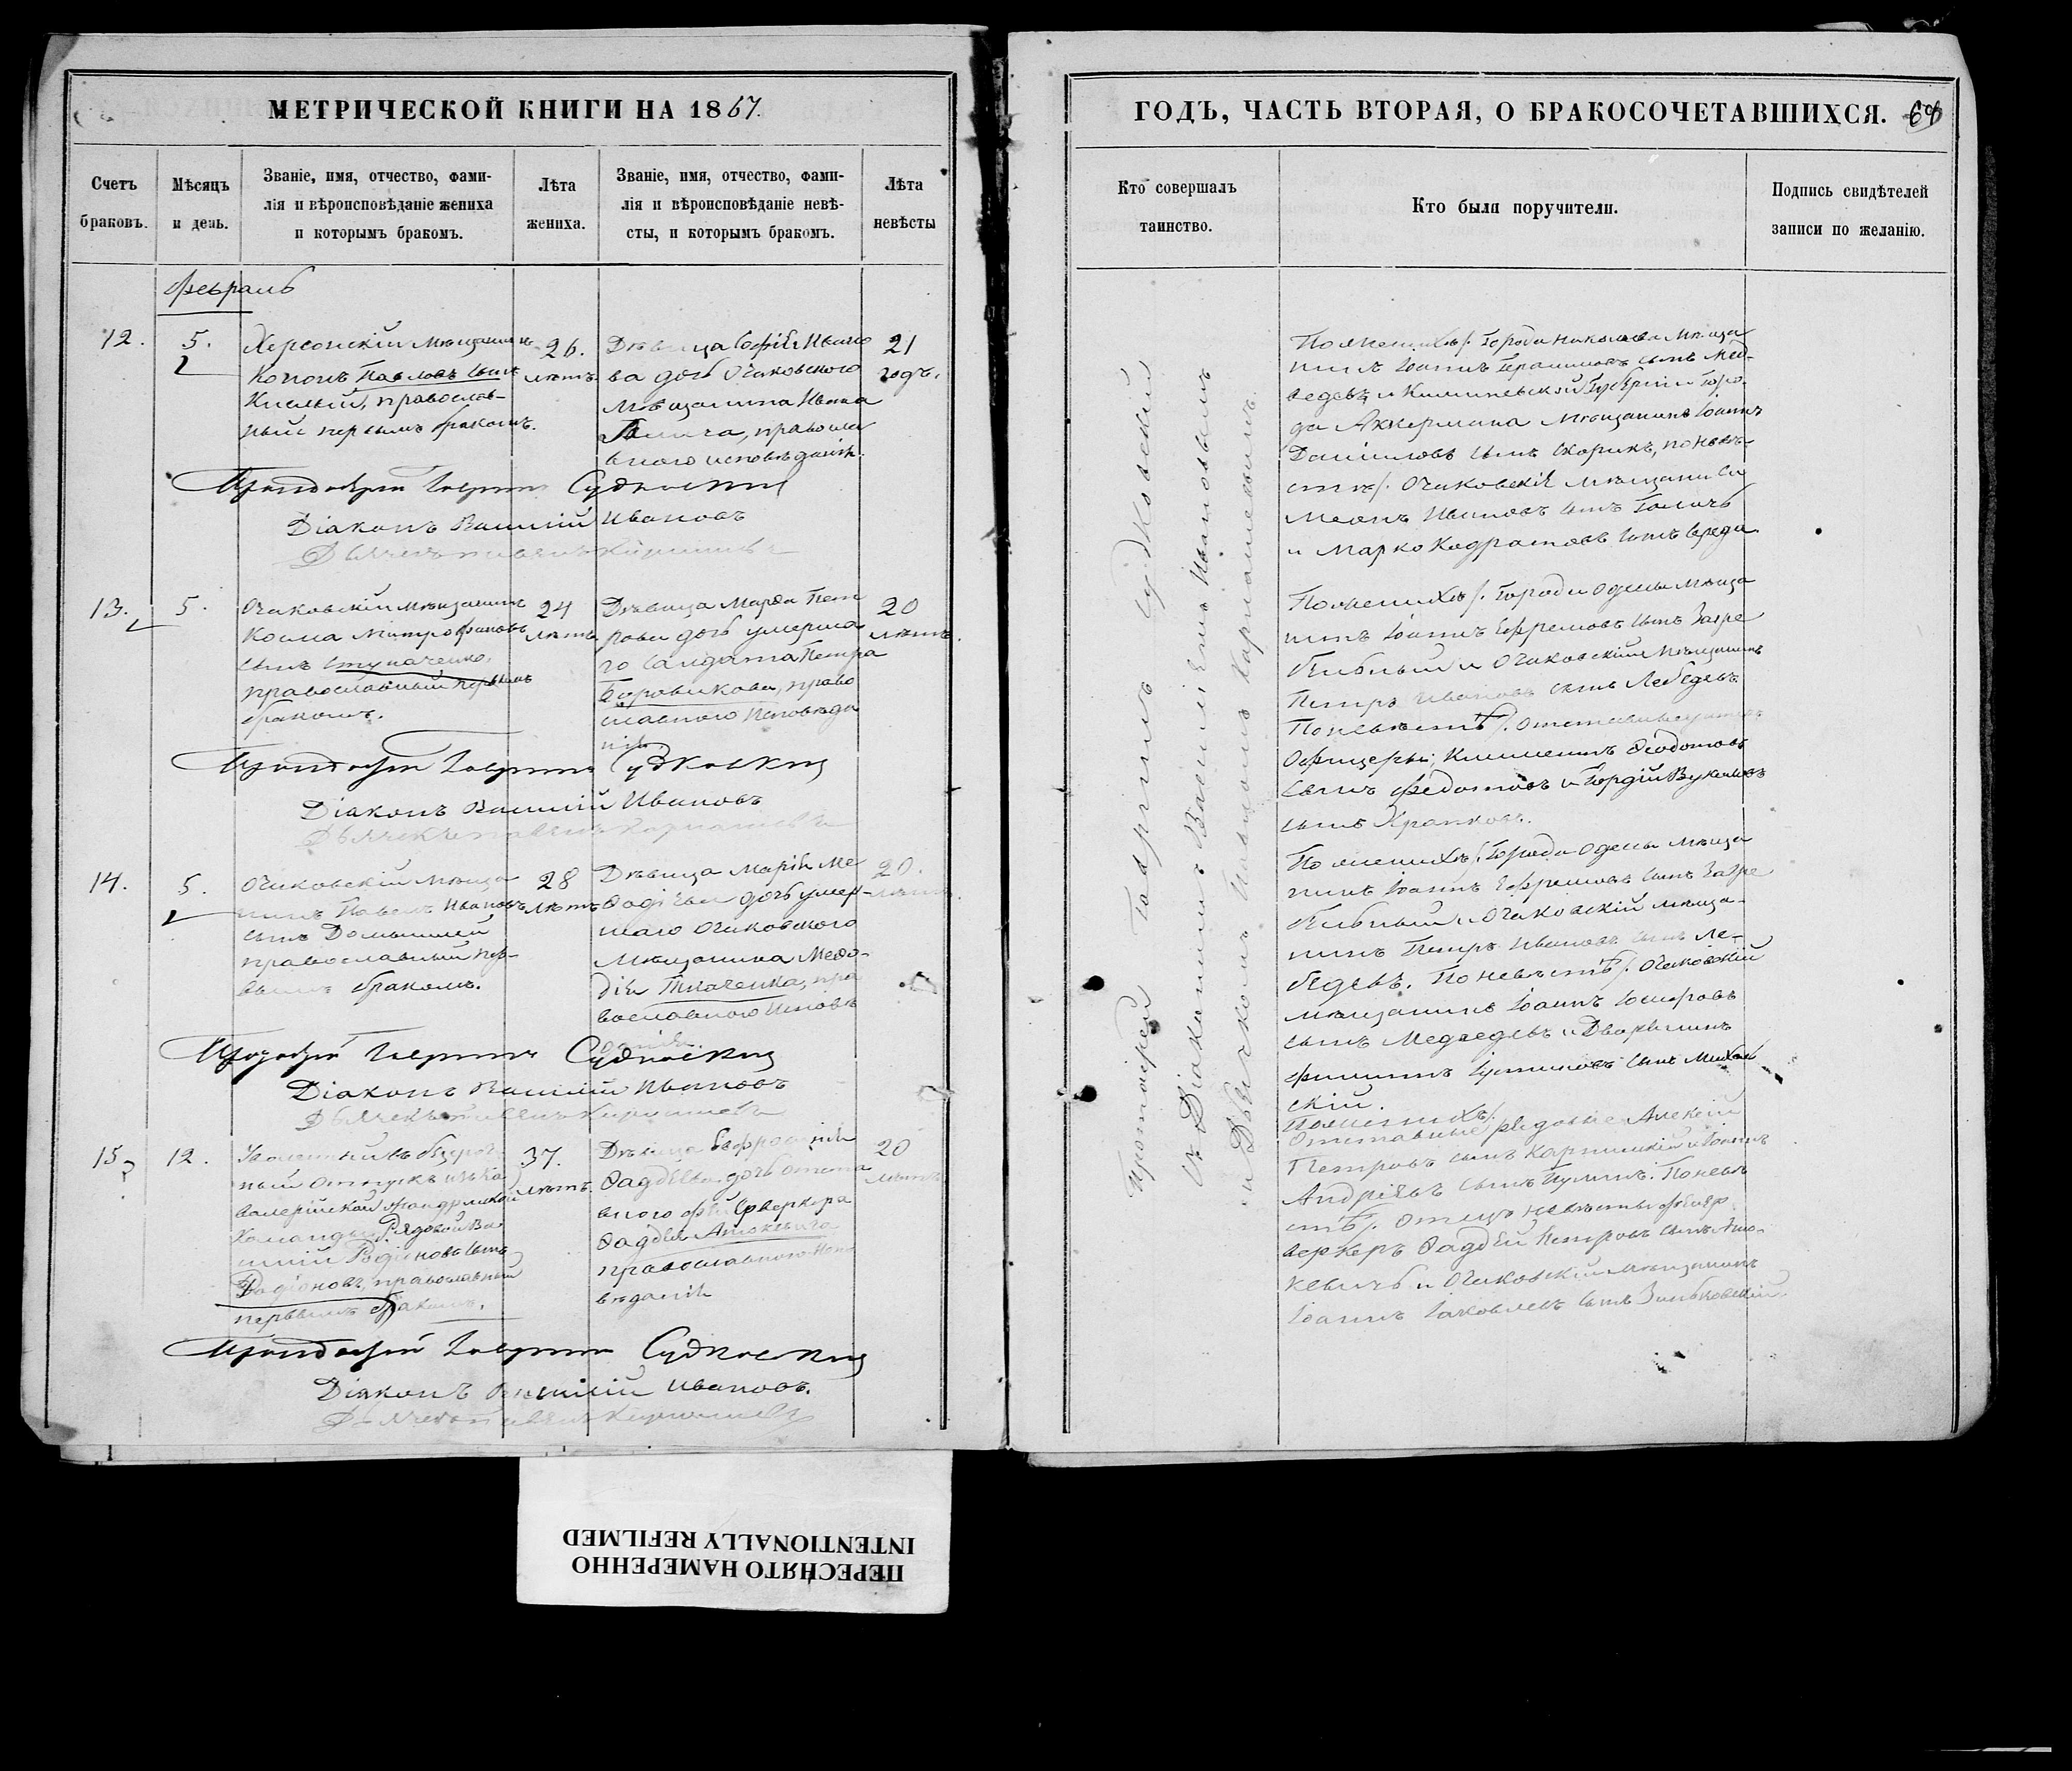 МЕТРИЧЕСКОЙ КНИГИ НА 1867.
Счетъ браковъ.
Мѣсяцъ и день.
Званіе, имя, отчество, фами-
лія и вѣроисповѣданіе жениха
и которымъ бракомъ.
Лѣта жениха.
Званіе, имя, отчество, фами-
лія и вѣроисповѣданіе невѣ-
сты, и которымъ бракомъ.
Лѣта невѣсты
Февраль
12.
5.
Херсонскій мѣщанинъ
Кононъ Павловъ сынъ
Кислый, православ-
ный первымъ бракомъ.
26.
лѣтъ.
Дѣвица Софія Ивано
ва дочь Очаковского
мѣщанина Ивана
православного исповѣданія.
21
годъ.
Протоіерей Гавріилъ Судковскій
Діаконъ Василій Ивановъ
13.
5.
Очаковскій мѣщанинъ
Косма Митрофановъ
сынъ Ступаченко,
православный первымъ
бракомъ.
24
лѣтъ
Дѣвица Марѳа Пет
рова дочь умерша
го солдата Петра
Боровикова, право
славного исповѣда
нія
20
лѣтъ.
Протоіерей Гавріилъ Судковскій
Діаконъ Василій Ивановъ
14.
5.
Очаковскій мѣща
нинъ Павелъ Ивановъ
сынъ
православный пер-
вымъ бракомъ.
28
лѣтъ
Дѣвица Марія Ме
ѳодіева дочь умер-
шаго Очаковского
мѣщанина Меѳо-
дія Ткаченка, пра
вославного исповѣ
данія.
20.
лѣтъ.
Протоіерей Гавріилъ Судковскій
Діаконъ Василій Ивановъ
15
12.
Уволенный въ безсроч
ный отпускъ изъ Ка
валерійской жандармской
команды Рядовой Ва
силій Родіоновъ сынъ
Родіоновъ, православный
первымъ бракомъ.
37.
лѣтъ.
Дѣвица Евфросинія
Ѳаддѣева дочь отста
вного фейерверкера
Ѳаддея
православного испо
вѣданія
20
лѣтъ
Протоіерей Гавріилъ Судковскій
Діаконъ Василій Ивановъ.
ГОДЪ, ЧАСТЬ ВТОРАЯ, О БРАКОСОЧЕТАВШИХСЯ.
Кто совершалъ таинство.
Кто были поручители.
Подпись свидѣтелей
записи по желанію.
Протоіерей Гавріилъ Судковскій
съ Діакономъ Василіемъ Ивановымъ
и Дьячкомъ
По женихѣ: Города Николаева мѣща
нинъ Іоаннъ Герасимовъ сынъ Мед-
ведевъ и Кишиневской Губерніи Горо-
да Аккермана мѣщанинъ Іоаннъ
Данииловъ сынъ Скорикъ, по невѣ-
стѣ: Очаковскіе мѣщане Си
меонъ Ивановъ сынъ
и Марко
По женихѣ: Города Одессы мѣща
нинъ Іоаннъ Ефремовъ сынъ
и Очаковскій мѣщанинъ
Петръ Ивановъ сынъ Лебедевъ
По невѣстѣ: отставные унтеръ
Офицеры: Климентъ Ѳеодотовъ
сынъ Федотовъ и Гордій
сынъ Храпковъ.
По женихѣ: Города Одессы мѣща
нинъ Іоаннъ Ефремовъ сынъ
и Очаковскій мѣща-
нинъ Петръ Ивановъ сынъ Ле-
бедевъ. По невѣстѣ: Очаковскій
мѣщанинъ Іоаннъ
сынъ Медведевъ и Дворянинъ
сынъ
скій.
По женихѣ:
Отставные рядовые Алексій
Петровъ сынъ и Іоаннъ
Андріевъ сынъ По невѣ
стѣ: отецъ невѣсты фейер
веркеръ Ѳаддей Петровъ сынъ
и Очаковскій мѣщанинъ
Іоаннъ Іаковлевъ сынъ Зиньковскій
ПЕРЕСНЯТО НАМЕРЕННО
INTENTIONALLY REFILMED